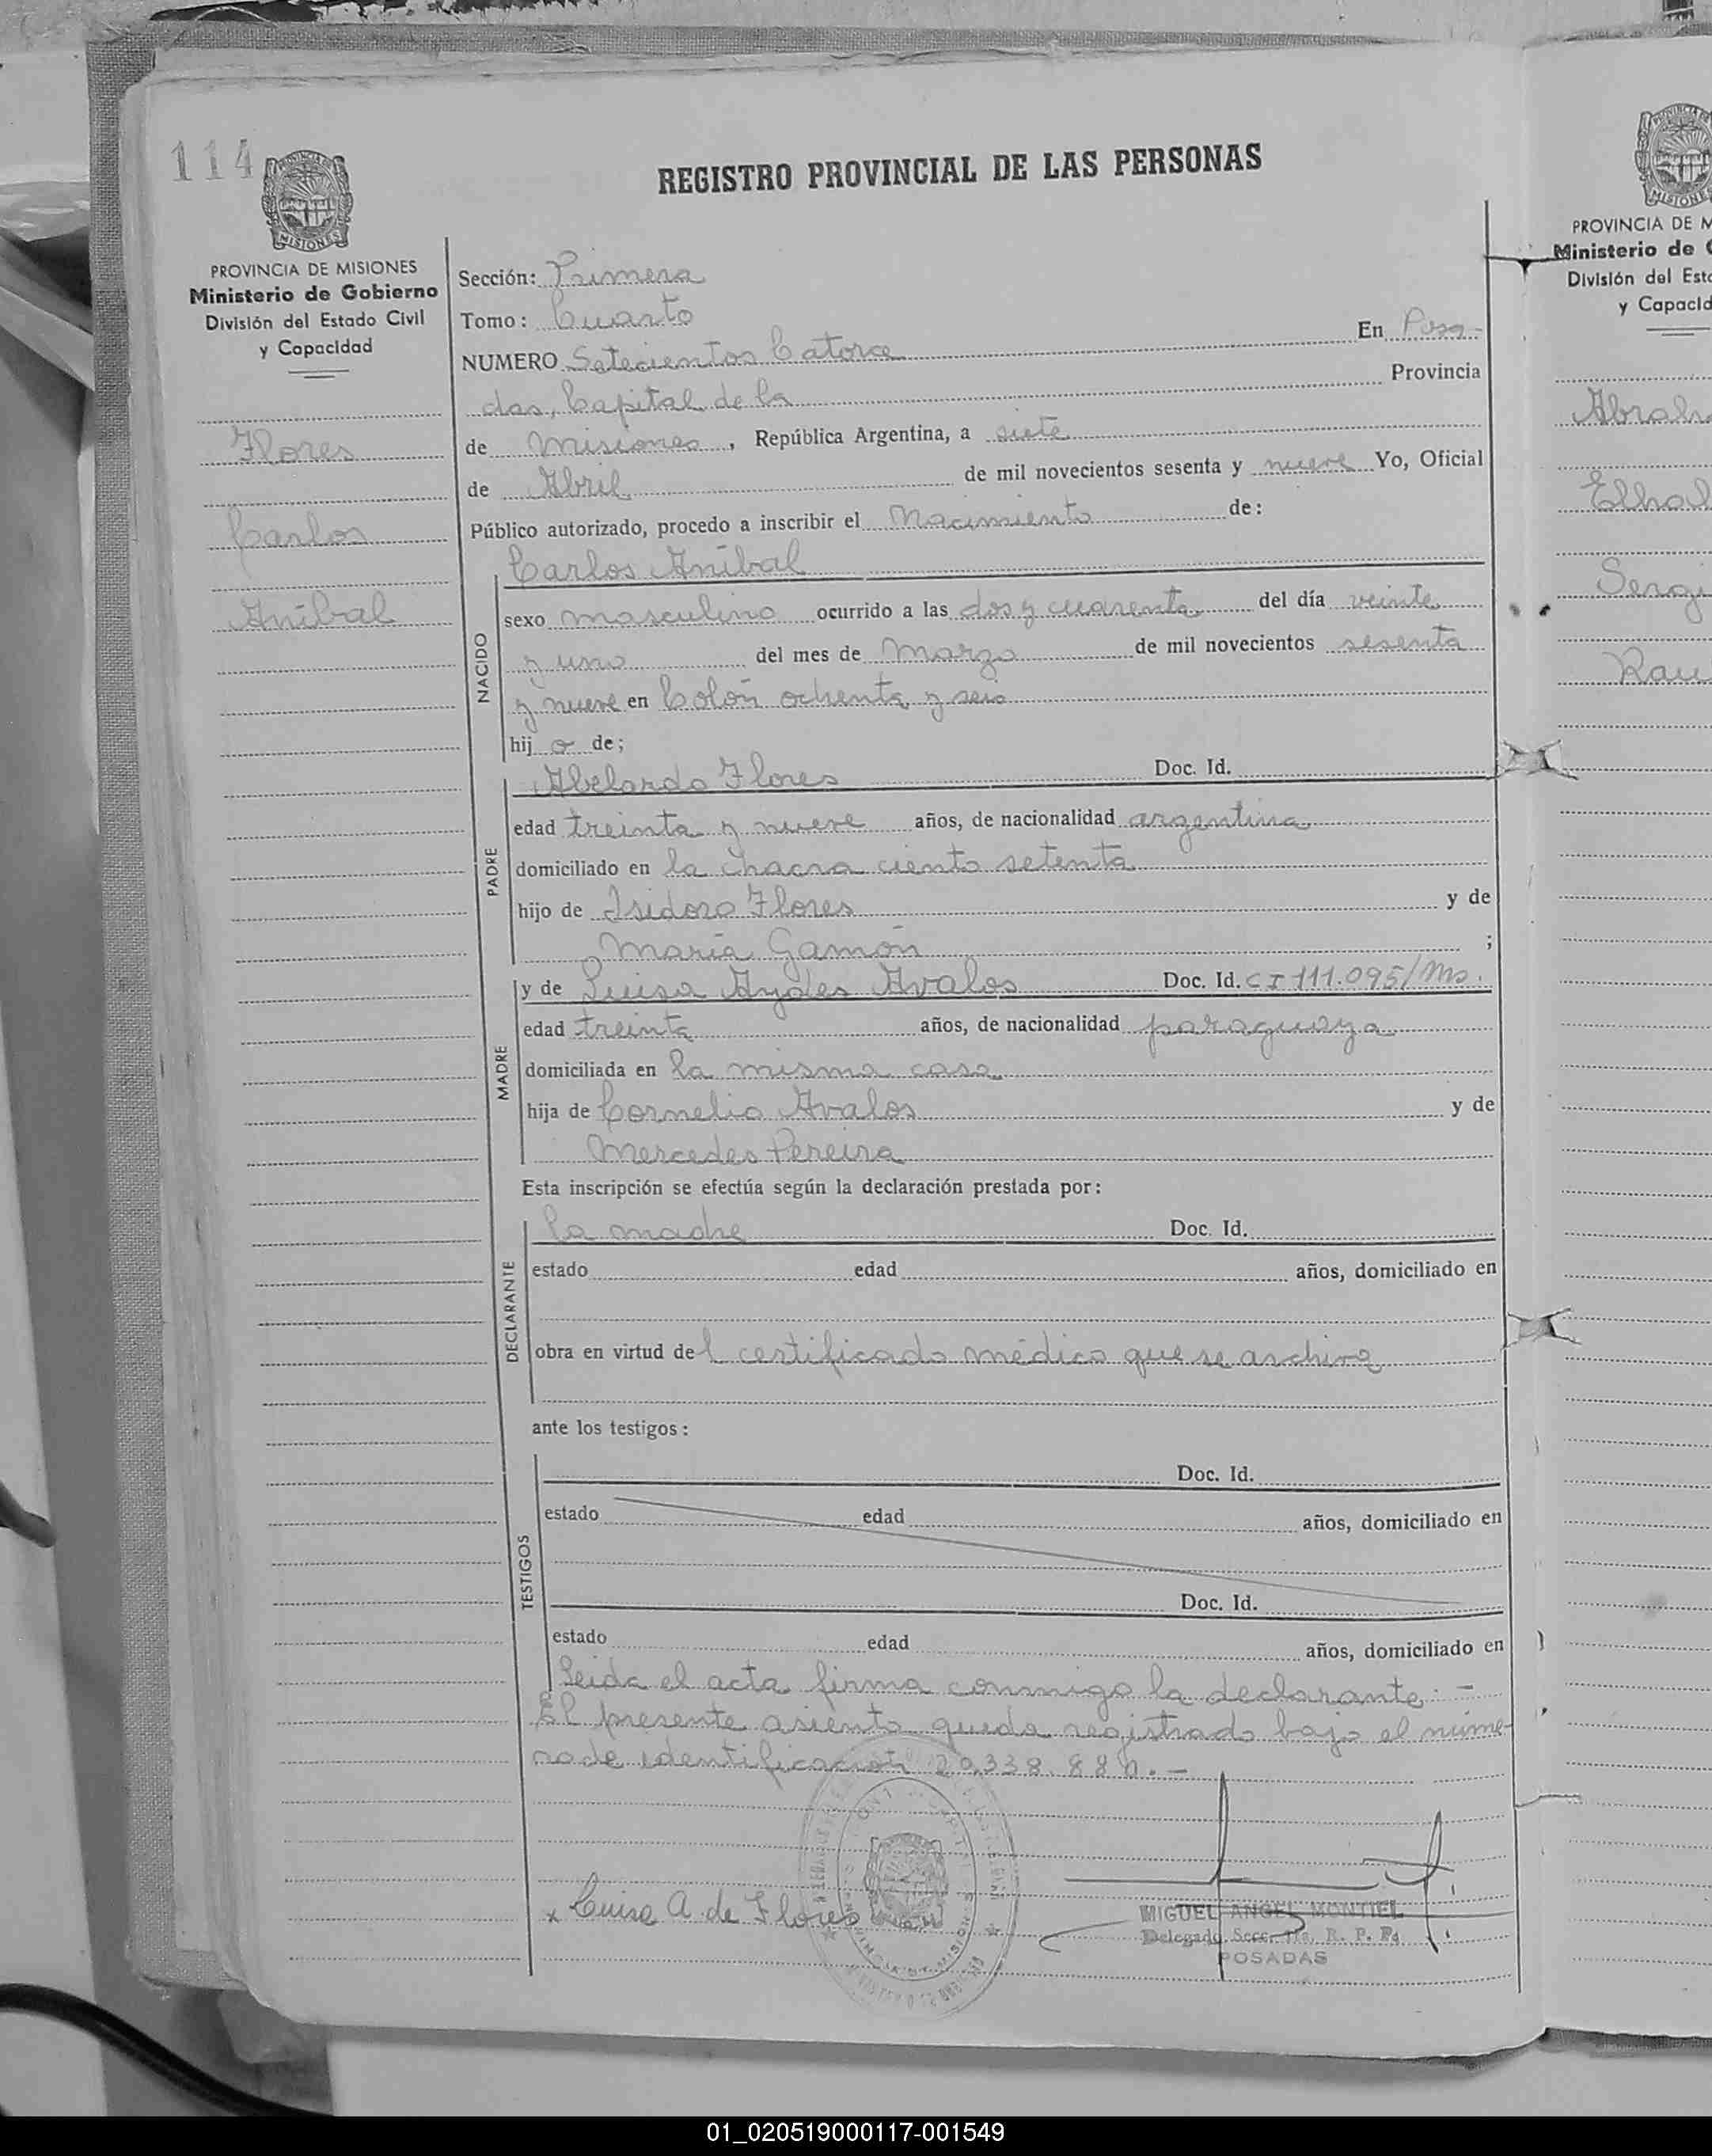 114
REGISTRO PROVINCIAL DE LAS PERSONAS
MISIONES
PROVINCIA DE MISIONES
Ministerio de Gobierno
División del Estado Civil
y Capacidad
Flores
Carlos
Aníbal
Sección: Primera
Tomo: Cuarto
NUMERO Setecientos Catorce En Posa-
das, Capital de la Provincia
de Misiones, República Argentina, a siete
de Abril de mil novecientos sesenta y nueve Yo, Oficial
Público autorizado, procedo a inscribir el Nacimiento de:
NACIDO
Carlos Aníbal
sexo masculino ocurrido a las dos y cuarenta del día veinte
y uno del mes de Marzo de mil novecientos sesenta
y nueve en Colón ochenta y seis
hijo de;
PADRE
Abelardo Flores Doc. Id.
edad treinta y nueve años, de nacionalidad argentina
domiciliado en la chacra ciento setenta
hijo de Isidoro Flores y de
María Gamón ;
MADRE
y de Luisa Avalos Doc. Id. CI 111.095/Ms.
edad treinta años, de nacionalidad paraguaya
domiciliada en la misma casa
hija de Cornelio Avalos y de
Mercedes Pereira
Esta inscripción se efectúa según la declaración prestada por:
DECLARANTE
la madre Doc. Id.
estado edad años, domiciliado en
obra en virtud del certificado médico que se archiva
ante los testigos:
TESTIGOS
Doc. Id.
estado edad años, domiciliado en
Doc. Id.
estado edad años, domiciliado en
Leida el acta firma conmigo la declarante. -
El presente asiento queda registrado bajo el núme-
ro de identificación
x Luisa A. de Flores
MIGUEL ANGEL MONTIEL
Delegado Secc. 1ra. R. P. P.
POSADAS
PROVINCIA DE M
Ministerio de G
División del Esta
y Capacid
Sergi
01_020519000117-001549